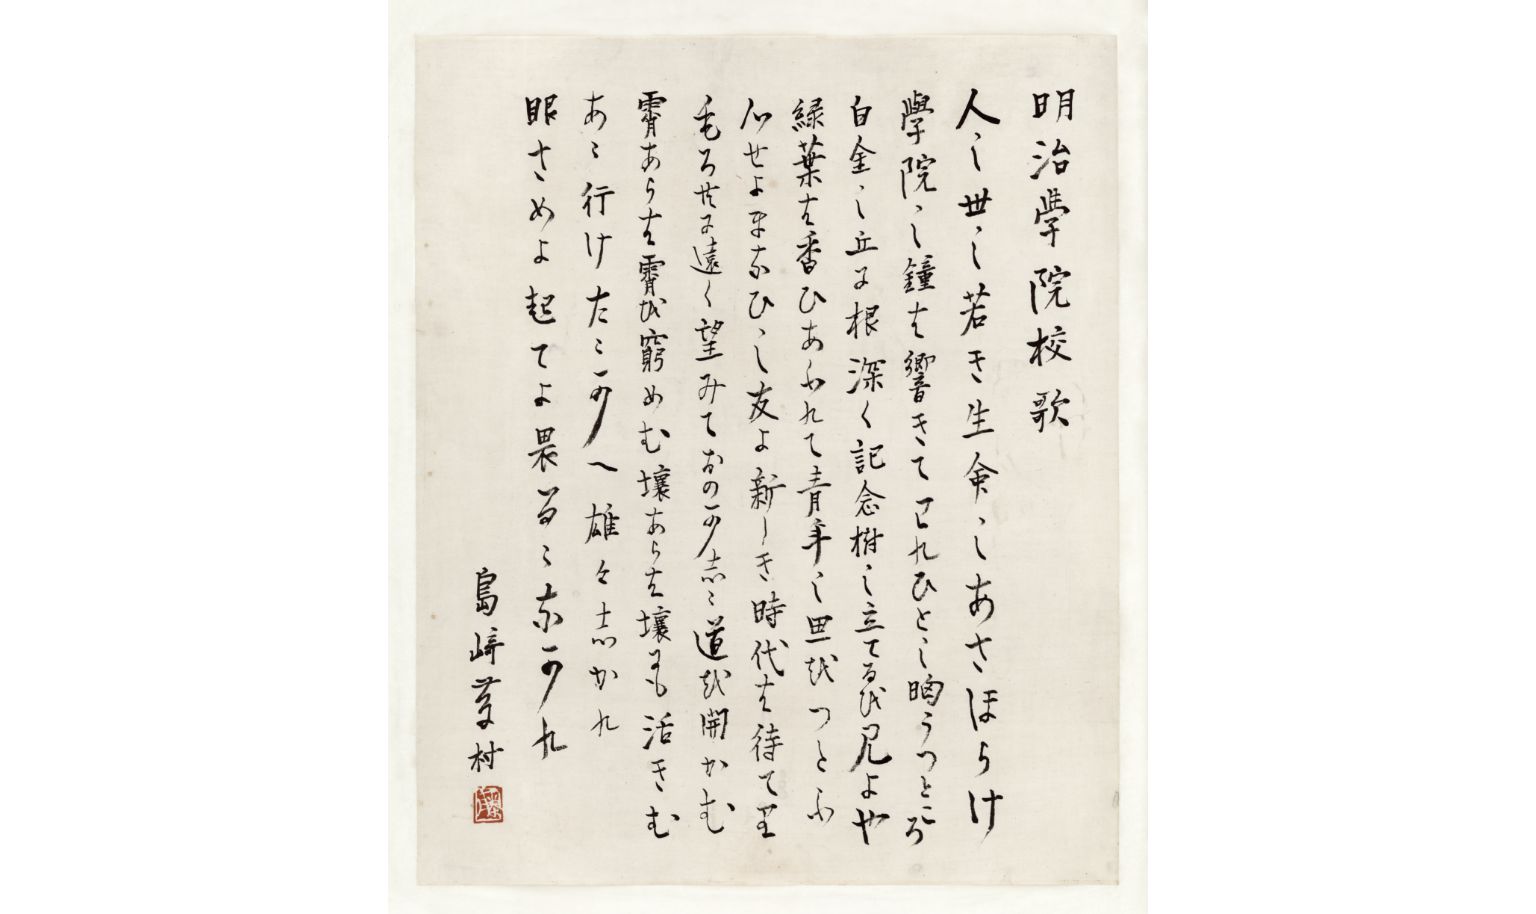 明治學院校歌
人の世の若き生命のあさほらけ
學院の鐘は響きてわれひとの胸うつところ
白金の丘に根深く記念樹の立てるを見よや
緑葉は香ひあふれて青年の思をつたふ
心せよまなひの友よ新しき時代は待てり
もろ共に遠く望みておのかしゝ道を開かむ
霄あらは霄を窮めむ壤あらは壤にも活きむ
あゝ行けたゝかへ雄々しかれ
眼さめよ起てよ畏るゝなかれ
島崎藤村